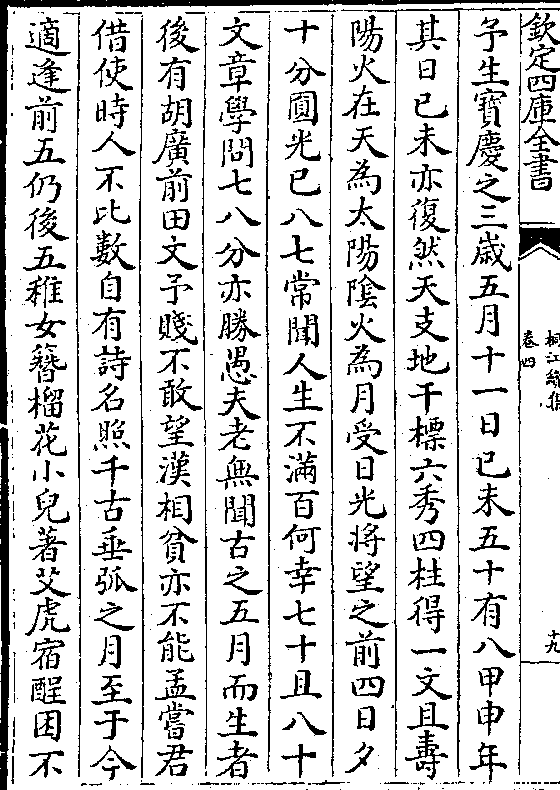 欽定四庫全書
桐江續集
卷四
十九
予生寶慶之三歳五月十一日已未五十有八甲申年
其日已未亦復然天支地干標六秀四柱得一文且壽
陽火在天為太陽陰火為月受日光将望之前四日夕
十分圓光已八七常聞人生不滿百何幸七十且八十
文章學問七八分亦勝愚夫老無聞古之五月而生者
後有胡廣前田文予賤不敢望漢相貧亦不能孟嘗君
借使時人不比數自有詩名照千古垂弧之月至于今
適逢前五仍後五稚女簪榴花小兒著艾虎宿酲困不